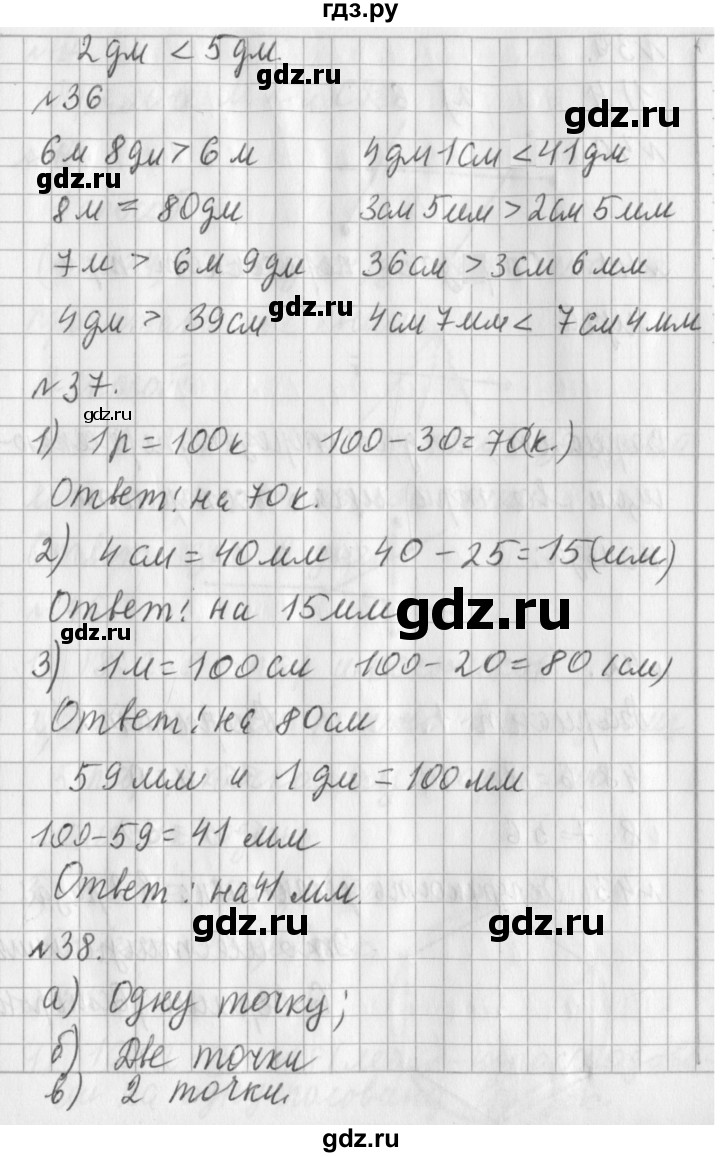 гдз.ру
2дм < 5дм.
gdz.ru
№36
gdz.ru
6м 8дм > 6м 4дм 1см < 41дм
gdz.ru
8м = 80дм 3см 5мм > 2см 5мм
7м > 6м 9дм 36см > 3см 6мм
gdz.ru
4дм > 39см 4см 7мм < 7см 4мм
№37.
gdz.ru
1) 1р = 100к 100 - 30 = 70(к.)
Ответ: на 70к.
2) 4см = 40мм 40 - 25 = 15(мм)
Ответ: на 15мм
gdz.ru
gdz.ru
3) 1м = 100см 100 - 20 = 80 (см)
Ответ: на 80см
59мм и 1дм = 100мм
100-59 = 41 мм
Ответ: на 41 мм.
gdz.ru gdz.ru
№38.
а) Одну точку;
б) Две точки
gdz.ru
в) 2 точки.
gdz.ru